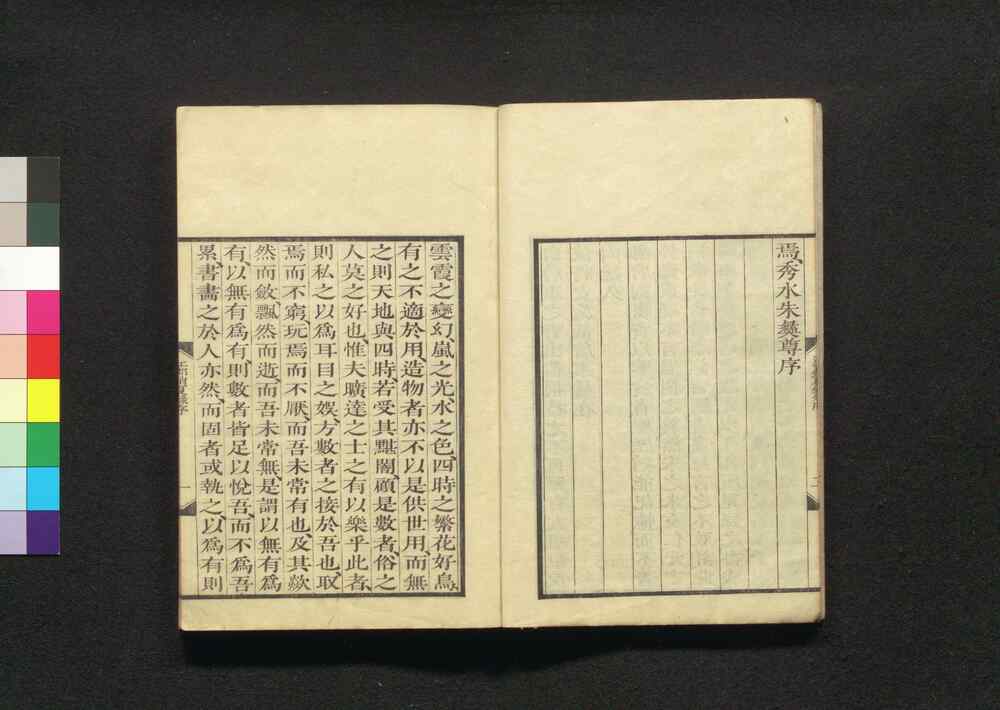 焉、秀水朱彝尊序
雲霞之變幻、嵐之光、水之色、四時之繁花好鳥、
有之不適於用、造物者亦不以是供世用、而無
之則天地與四時、若受其黮闇、顧是數者、俗之
人莫之好也、惟夫曠達之士之有以樂乎此者、
則私之以爲耳目之娛、方數者之接於吾也、取
焉而不窮、玩焉而不厭、而吾未常有也、及其歘
然而斂、飄然而逝、而吾未常無、是謂以無有爲
有、以無有爲有、則數者皆足以悅吾、而不爲吾
累、書畫之於人亦然、而固者或執之、以爲有則
一